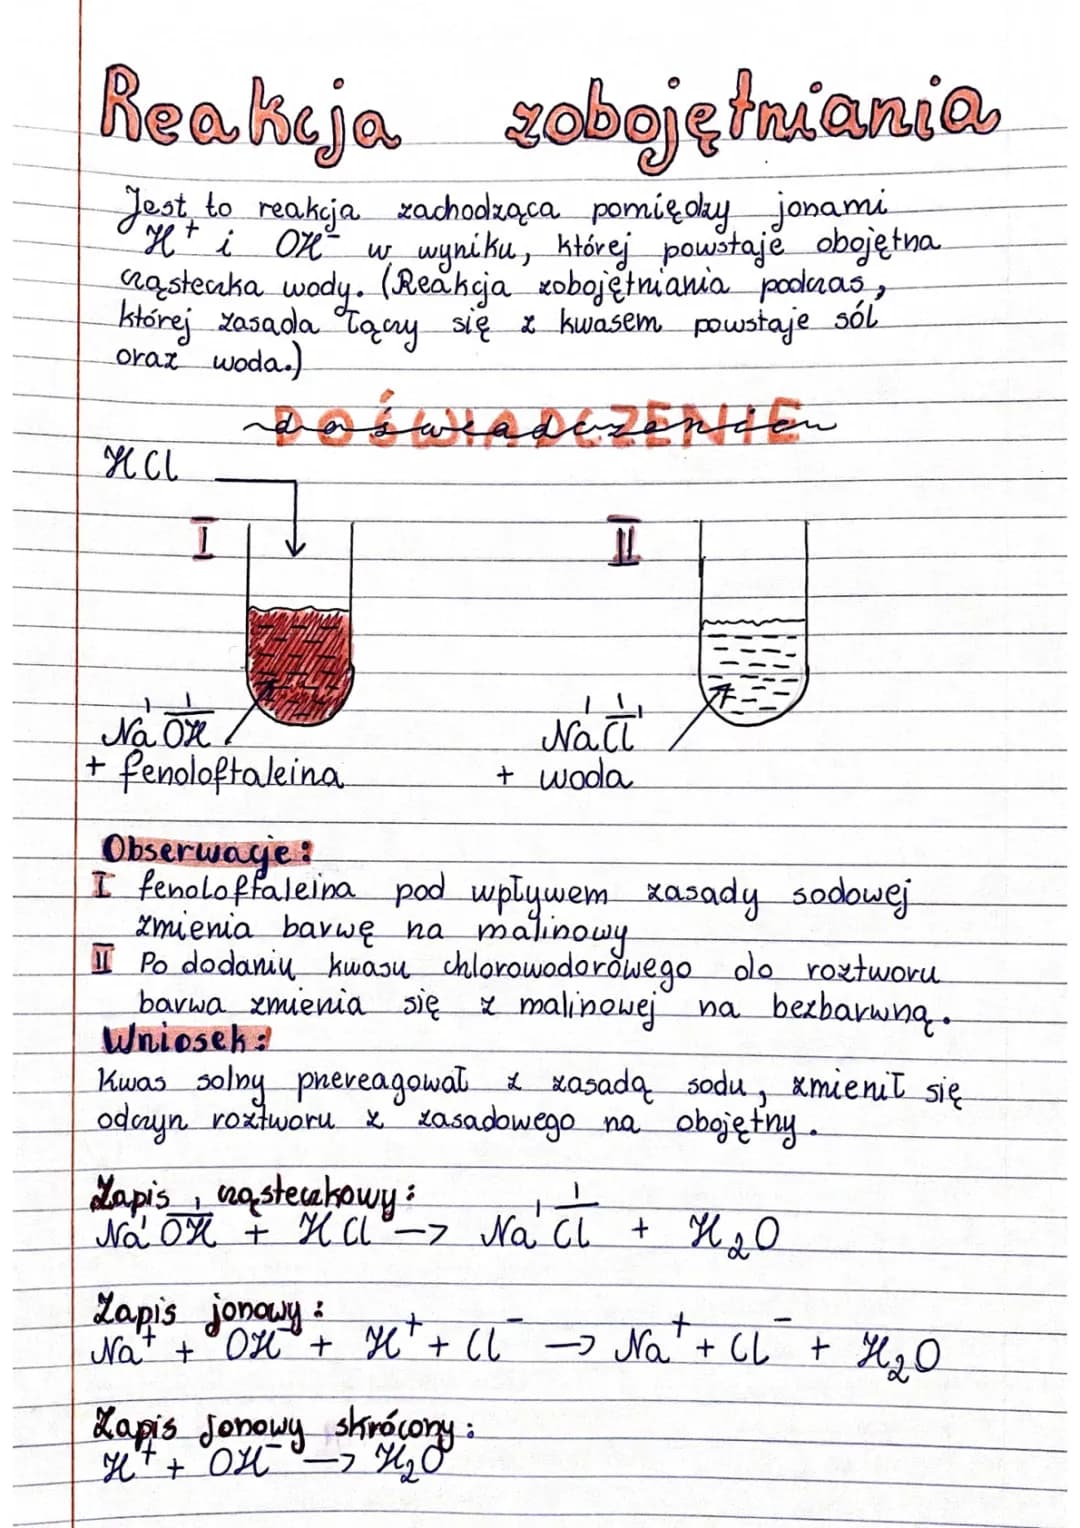 Reakcja zobojętniania
Jest to reakcja zachodząca pomiędzy jonami
H⁺ i OH⁻ w wyniku, której powstaje obojętna
cząsteczka wody. (Reakcja zobojętniania podczas,
której zasada łączy się z kwasem powstaje sól
oraz woda.)
DOŚWIADCZENIE
doświadczenien
HCl
I
II
I I
Na OH
+ fenoloftaleina
I I
NaCl
+ woda
Obserwacje:
I fenoloftaleina pod wpływem zasady sodowej
zmienia barwę na malinowy
II Po dodaniu kwasu chlorowodorowego do roztworu
barwa zmienia się z malinowej na bezbarwną.
Wniosek:
Kwas solny przereagował z zasadą sodu, zmienił się
odczyn roztworu z zasadowego na obojętny.
Zapis cząsteczkowy:
NaᴵOHᴵ + HCl → NaᴵClᴵ + H₂O
Zapis jonowy:
Na⁺ + OH⁻ + H⁺ + Cl⁻ → Na⁺ + Cl⁻ + H₂O
Zapis Jonowy skrócony:
H⁺ + OH⁻ → H₂O